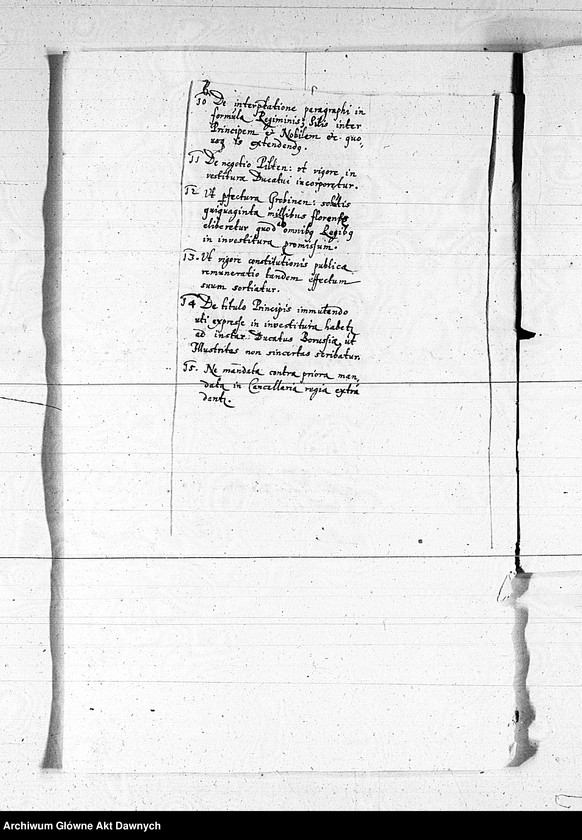 10 De interptatione paragraphi in
formula Regiminis, Litis inter
Principem et Nobilem etc. quo
usq̃ se extendendq.
11 De negotio Pilten: ut vigore in
vestitura Ducatui incorporetur.
12 Ut pfectura Grobinen: solutis
quiquaginta millibus florenis
eliberetur quod ab omnibq Regibq
in investitura promissum.
13. Ut vigore constitutionis publica
remuneratio tandem effectum
suum sortiatur.
14 De titulo Principis immutando
uti expresse in investitura habetr
ad instar Ducatus Borussiæ, ut
Illustritas non sinceritas scribatur.
15. Ne mandata contra priora man,
data in Cancellaria regia extra
dentr.
Archiwum Główne Akt Dawnych